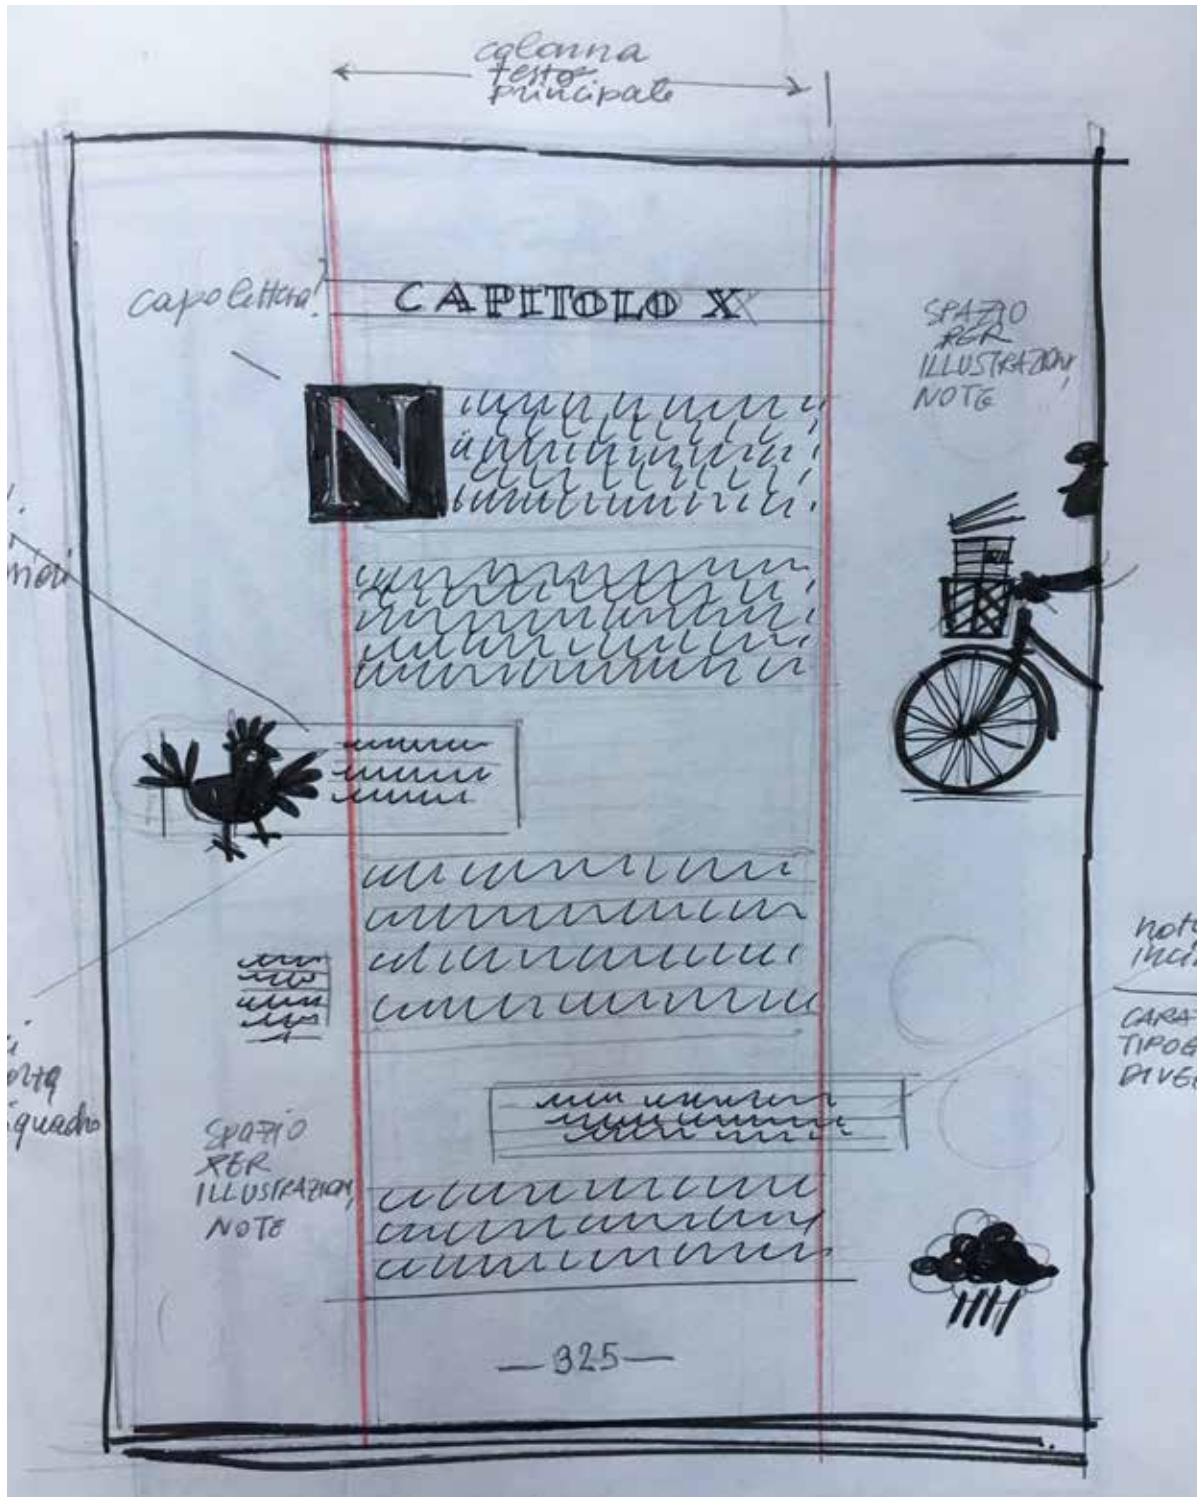 colonna
testo
principale
capolettera!
CAPITOLO X
SPAZIO
PER
ILLUSTRAZIONI,
NOTE
N
SPAZIO
PER
ILLUSTRAZIONI,
NOTE
quadro
CARA
TIPOG
DIVE
— 325 —